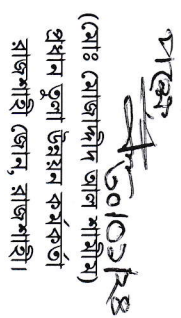 ৩০/০১/২৪
(মোঃ মোজাদ্দীদ আল শামীম)
প্রধান তুলা উন্নয়ন কর্মকর্তা
রাজশাহী জোন, রাজশাহী।